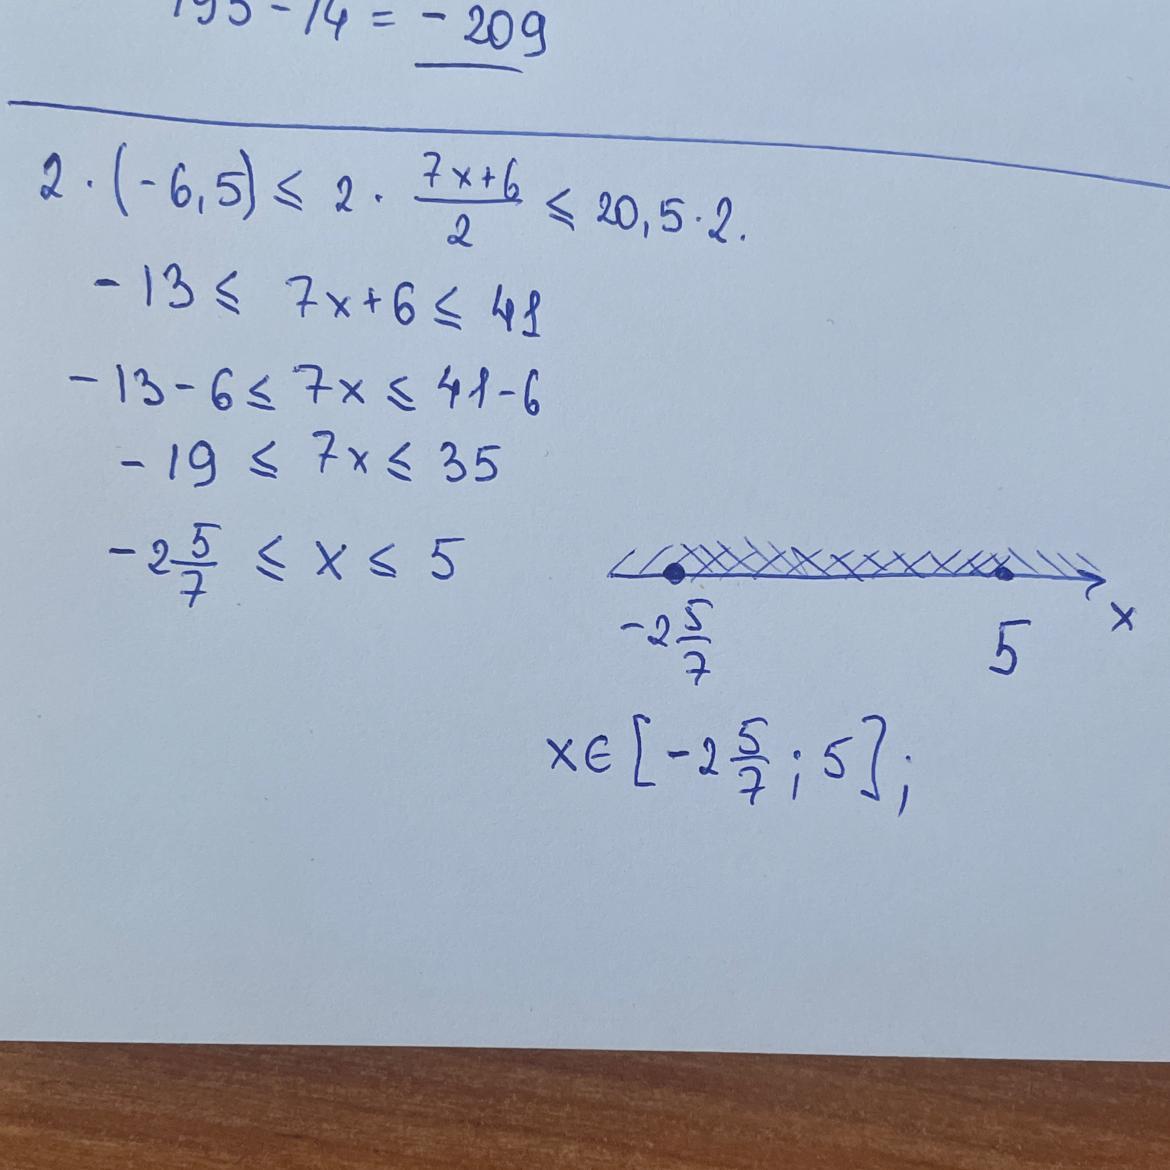 195 - 14 = - 209
2 · (-6,5) ≤ 2 · \frac{7x+6}{2} ≤ 20,5 · 2.
-13 ≤ 7x+6 ≤ 41
-13-6 ≤ 7x ≤ 41-6
-19 ≤ 7x ≤ 35
-2\frac{5}{7} ≤ x ≤ 5
-2\frac{5}{7} 5 x
x∈[-2\frac{5}{7}; 5];